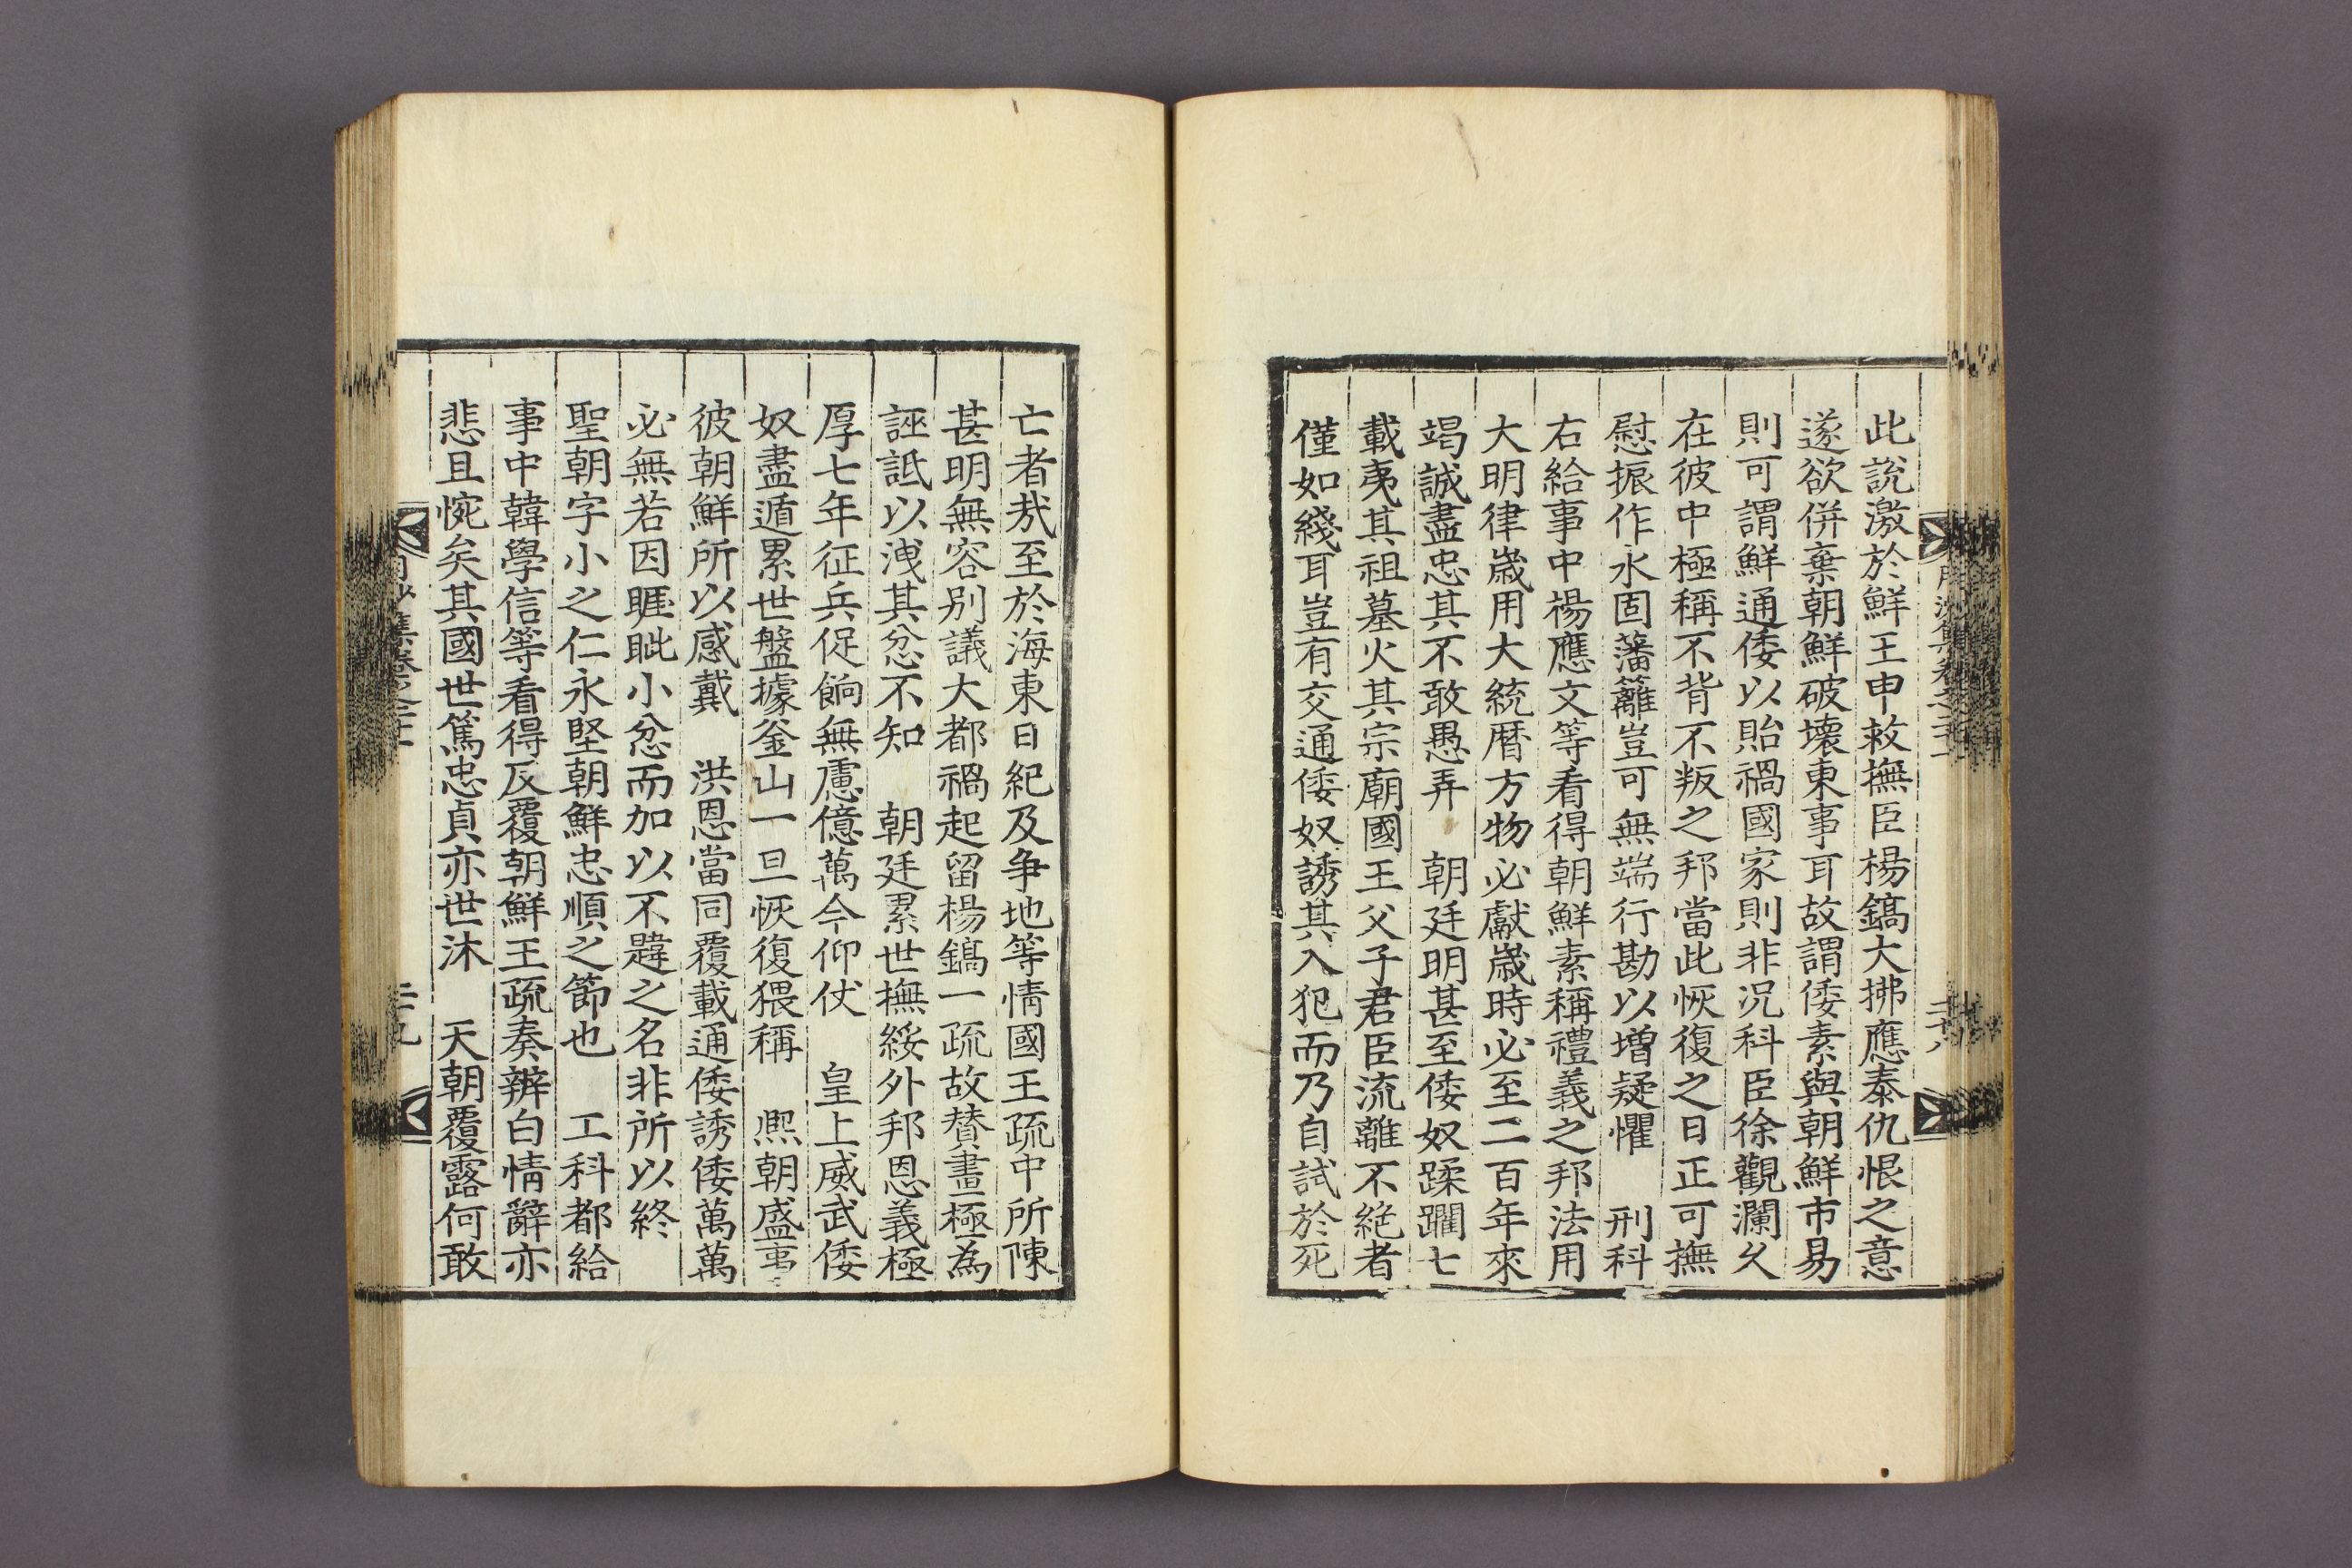 此說激於鮮王申救撫臣楊鎬大拂應泰仇恨之意
遂欲併棄朝鮮破壞東事耳故謂倭素與朝鮮市易
則可謂鮮通倭以貽禍國家則非况科臣徐觀瀾久
在彼中極稱不背不叛之邦當此恢復之日正可撫
慰振作永固藩籬豈可無端行勘以增疑懼 刑科
右給事中楊應文等看得朝鮮素稱禮義之邦法用
大明律歲用大統曆方物必獻歲時必至二百年來
竭誠盡忠其不敢愚弄 朝廷明甚至倭奴蹂躙七
載夷其祖墓火其宗廟國王父子君臣流離不絶者
僅如綫耳豈有交通倭奴誘其入犯而乃自試於死
亡者㦲至於海東日紀及争地等情國王疏中所陳
甚明無容别議大都禍起留楊鎬一疏故賛畫極為
誣詆以洩其忿不知 朝廷累世撫綏外邦恩義極
厚七年征兵促餉無慮億萬今仰仗 皇上威武倭
奴盡遁累世盤據釜山一旦恢復猥稱 熈朝盛事
彼朝鮮所以感戴 洪恩當同覆載通倭誘倭萬萬
必無若因睚眦小忿而加以不韙之名非所以終
聖朝字小之仁永堅朝鮮忠順之節也 工科都給
事中韓學信等看得反覆朝鮮王疏奏辨白情辭亦
悲且惋矣其國世篤忠貞亦世沐 天朝覆露何敢